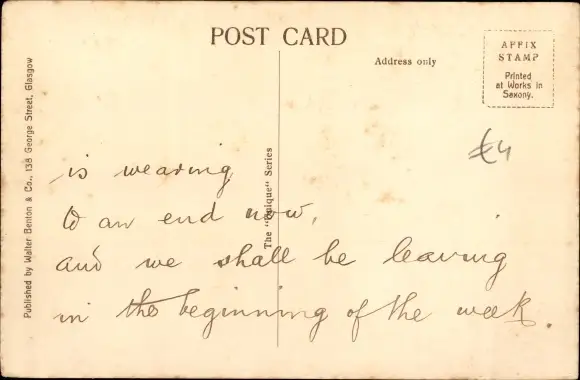 POST CARD
Address only
AFFIX
STAMP
Printed
at Works in
Saxony.
£4
is wearing
to an end now,
and we shall be leaving
in the beginning of the week.
The "Unique" Series
Published by Walter Benton & Co., 138 George Street, Glasgow